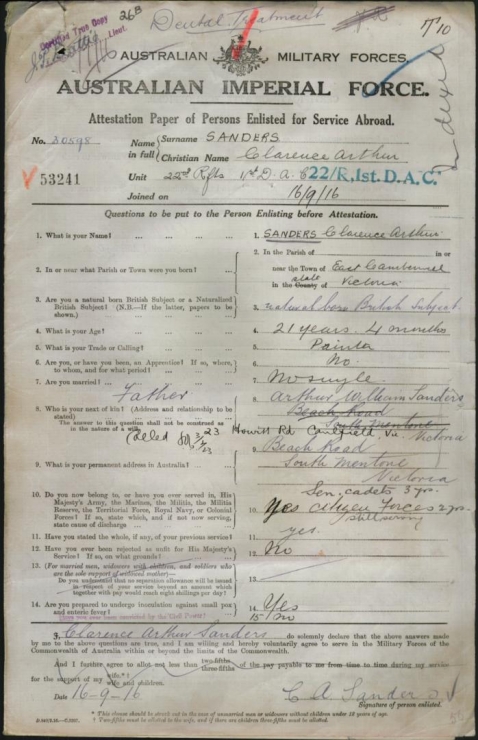 Dental Treatment
26B
Certified True Copy
Lieut.
17/10
Indexed
AUSTRALIAN MILITARY FORCES.
AUSTRALIAN IMPERIAL FORCE.
Attestation Paper of Persons Enlisted for Service Abroad.
No. 30598
Name in full Surname SANDERS
Christian Name Clarence Arthur
V 53241
Unit 22nd Rfts 1st D.A.C 22/R, 1st. D.A.C.
Joined on 16/9/16
Questions to be put to the Person Enlisting before Attestation.
1. What is your Name? ... 1. SANDERS Clarence Arthur
2. In or near what Parish or Town were you born? ... 2. In the Parish of in or
near the Town of East Camberwell
in the County of state Victoria
3. Are you a natural born British Subject or a Naturalized
British Subject? (N.B.—If the latter, papers to be
shown.) 3. natural born British Subject
4. What is your Age? ... 4. 21 years. 4 months
5. What is your Trade or Calling? ... 5. Painter
6. Are you, or have you been, an Apprentice? If so, where,
to whom, and for what period? ... 6. No.
7. Are you married? ... 7. No single
Father
8. Who is your next of kin? (Address and relationship to be
stated) 8. Arthur William Sanders
Beach Road
South Mentone
Victoria
The answer to this question shall not be construed as
in the nature of a will.
23 Howitt Rd. Caulfield, Vic
9. What is your permanent address in Australia? ... 9. Beach Road
South Mentone
Victoria
10. Do you now belong, or have you ever served in, His
Majesty's Army, the Marines, the Militia, the Militia
Reserve, the Territorial Force, Royal Navy, or Colonial
Forces? If so, state which, and if not now serving,
state cause of discharge
Sen. cadets 3 yrs.
10. Yes citizen Forces 2 yrs.
still serving
11. Have you stated the whole, if any, of your previous service? 11. yes.
12. Have you ever been rejected as unfit for His Majesty's
Service? If so, on what grounds? 12. No
13. (For married men, widowers with children, and soldiers who
are the sole support of widowed mother)—
Do you understand that no separation allowance will be issued
in respect of your service beyond an amount which
together with pay would reach eight shillings per day? 13.
14. Are you prepared to undergo inoculation against small pox
and enteric fever? 14. Yes
Have you ever been convicted by the Civil Power? 15/ No
I, Clarence Arthur Sanders do solemnly declare that the above answers made
by me to the above questions are true, and I am willing and hereby voluntarily agree to serve in the Military Forces of the
Commonwealth of Australia within or beyond the limits of the Commonwealth.
And I further agree to allot not less than two-fifths
three-fifths of the pay payable to me from time to time during my service
for the support of my wife.
wife and children.
Date 16-9-16
C. A. Sanders
Signature of person enlisted.
* This clause should be struck out in the case of unmarried men or widowers without children under 18 years of age.
† Two-fifths must be allotted to the wife, and if there are children three-fifths must be allotted.